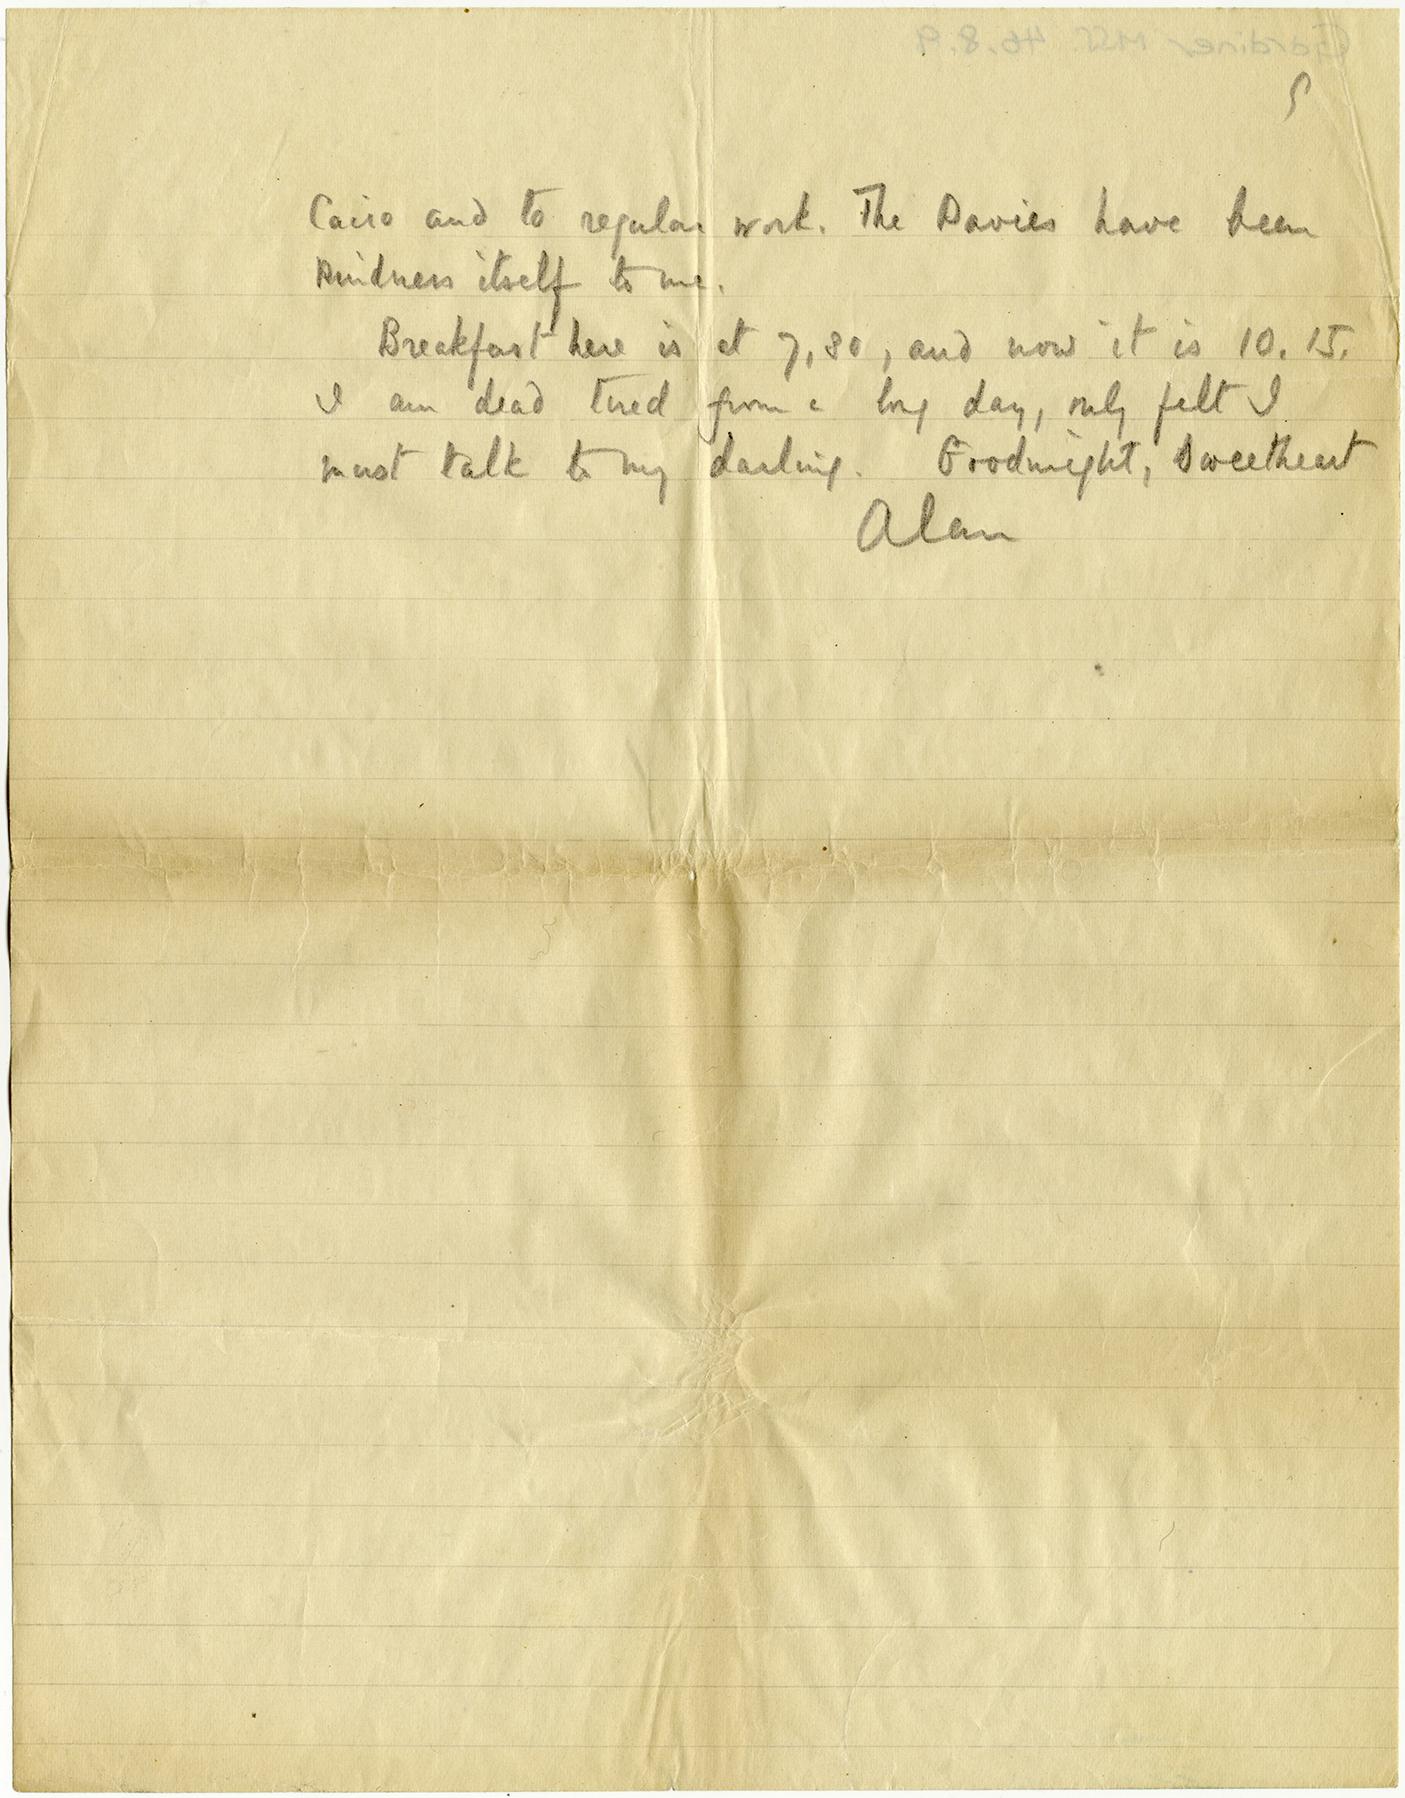 Gardiner MSS. 46.8.9
5
Cairo and to regular work. The Davies have been
kindness itself to me.
Breakfast here is at 7,30, and now it is 10.15.
I am dead tired from a long day, only felt I
must talk to my darling. Goodnight, Sweetheart
Alan